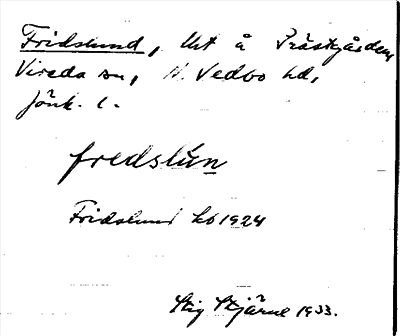 Fridslund, lht å Prästgården
Vireda sn, N. Vedbo hd,
Jönk. l.
fredslun
Fridslund kb 1924
Stig Stjärne 1933.